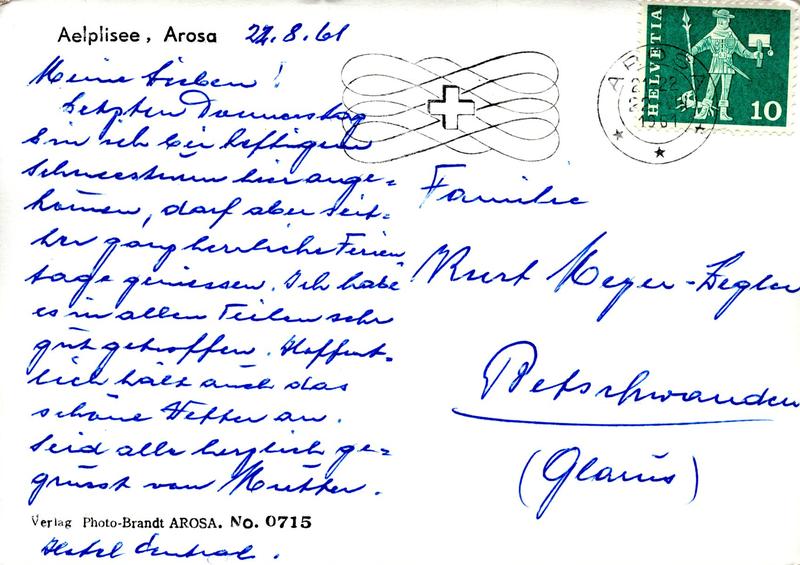 Aelplisee, Arosa 22.8.61
Meine Lieben!
Letzten Donnerstag
bin ich bei heftigem
Schneesturm hier ange=
kommen, darf aber seit=
her ganz herrliche Ferien
tage geniessen. Ich habe
es in allen Teilen sehr
gut getroffen. Hoffent=
lich hält auch das
schöne Wetter an.
Seid alle herzlich ge=
grüsst von Mutter.
Verlag Photo-Brandt AROSA. No. 0715
Hotel Central.
HELVETIA
10
AROSA
1961
Familie
Kurt Meyer-Zegler
Betschwanden
(Glarus)